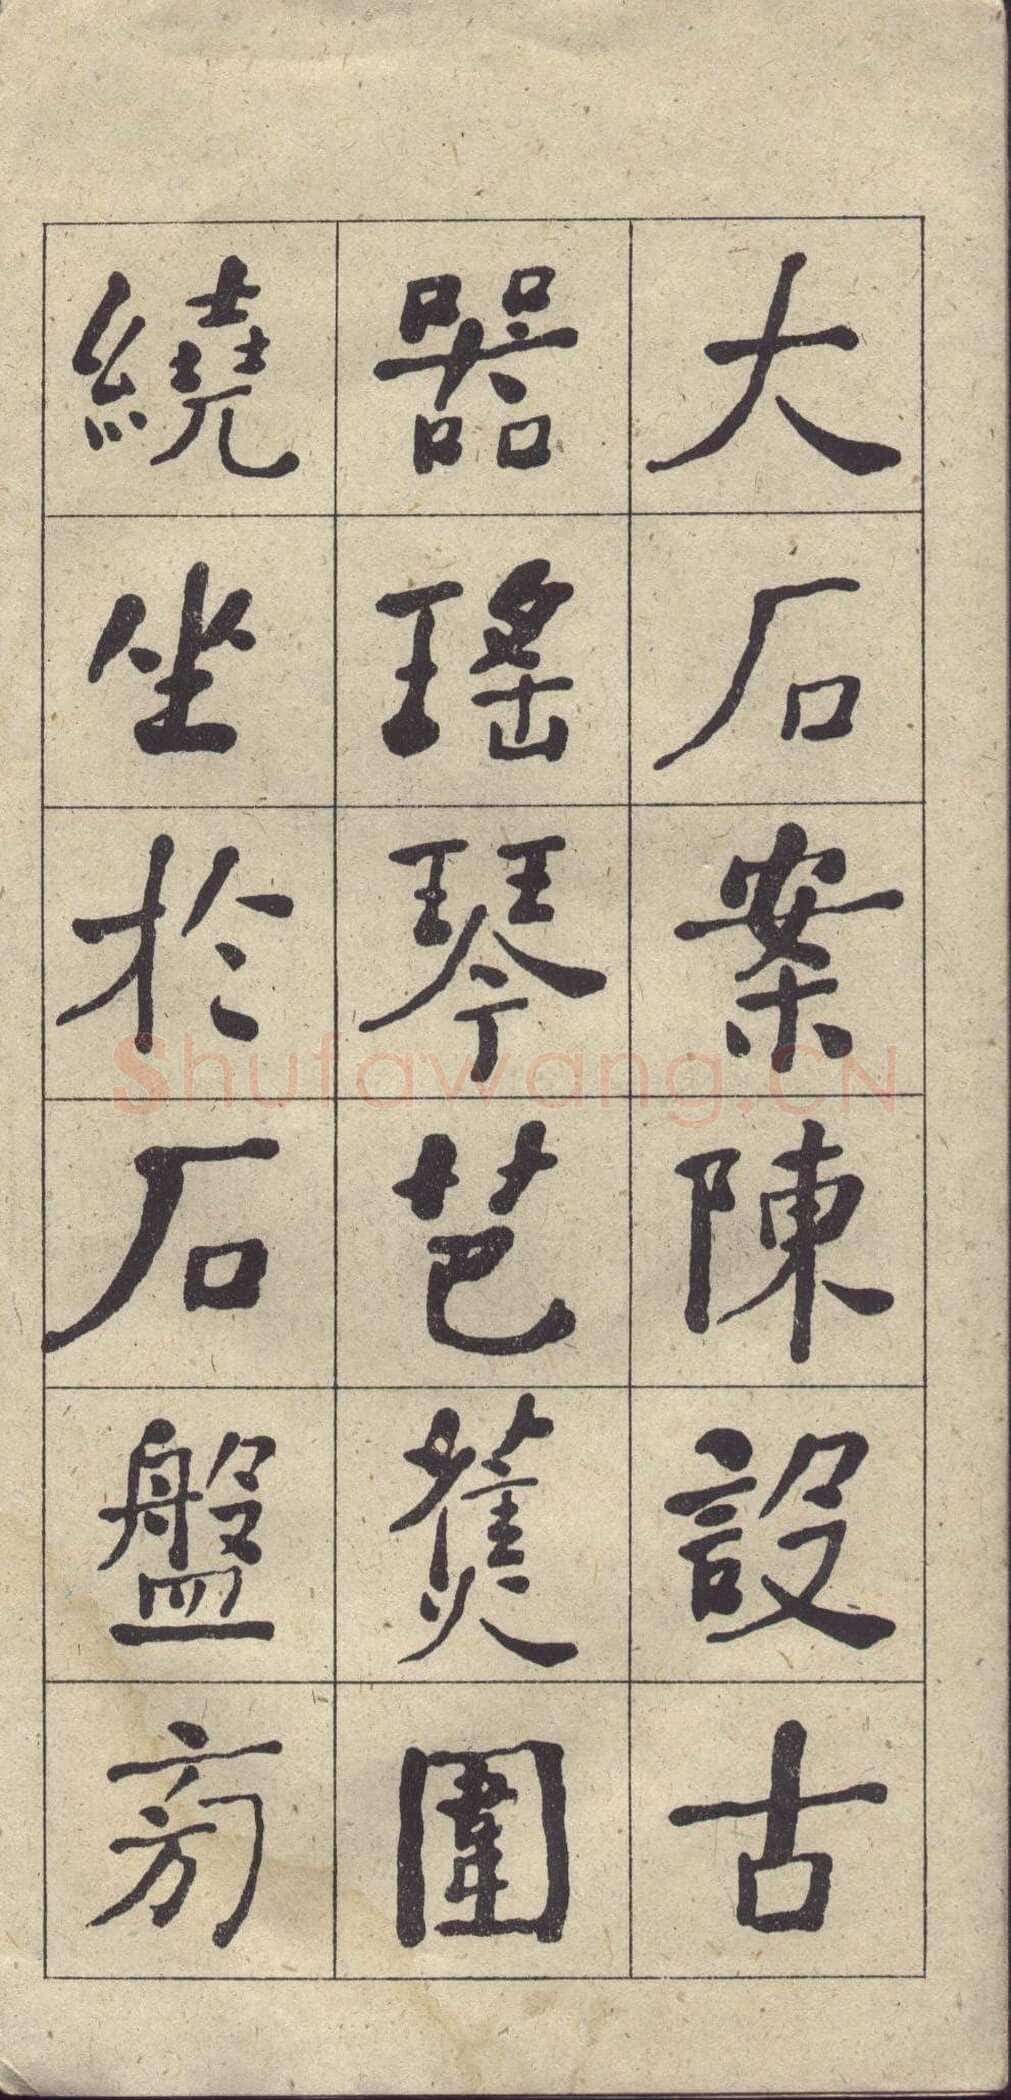 大石案陳設古
器瑤琴芭蕉圍
繞坐於石盤旁
Shufawang.CN